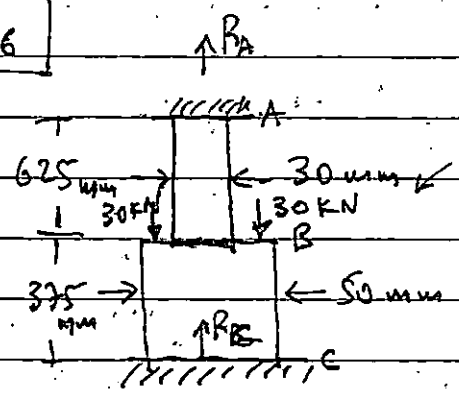 6
RA
A
625 mm
30 mm
30KN
30 KN
B
375 mm
50 mm
C